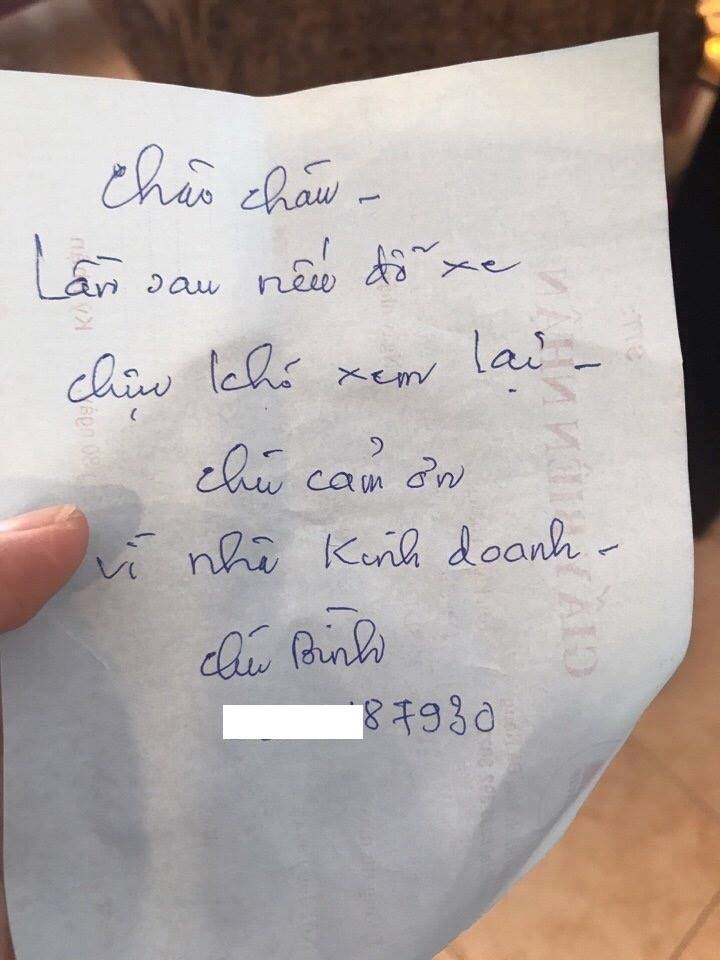 Chào cháu -
Lần sau nếu đỗ xe
chịu khó xem lại -
chú cảm ơn
vì nhà kinh doanh -
chú Bình
87930
GIẤY BIÊN NHẬN